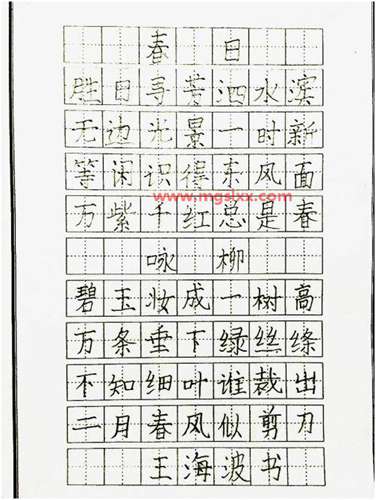 春日
胜日寻芳泗水滨
无边光景一时新
等闲识得东风面
www.mgslxx.com
万紫千红总是春
咏柳
碧玉妆成一树高
万条垂下绿丝绦
不知细叶谁裁出
二月春风似剪刀
王海波书